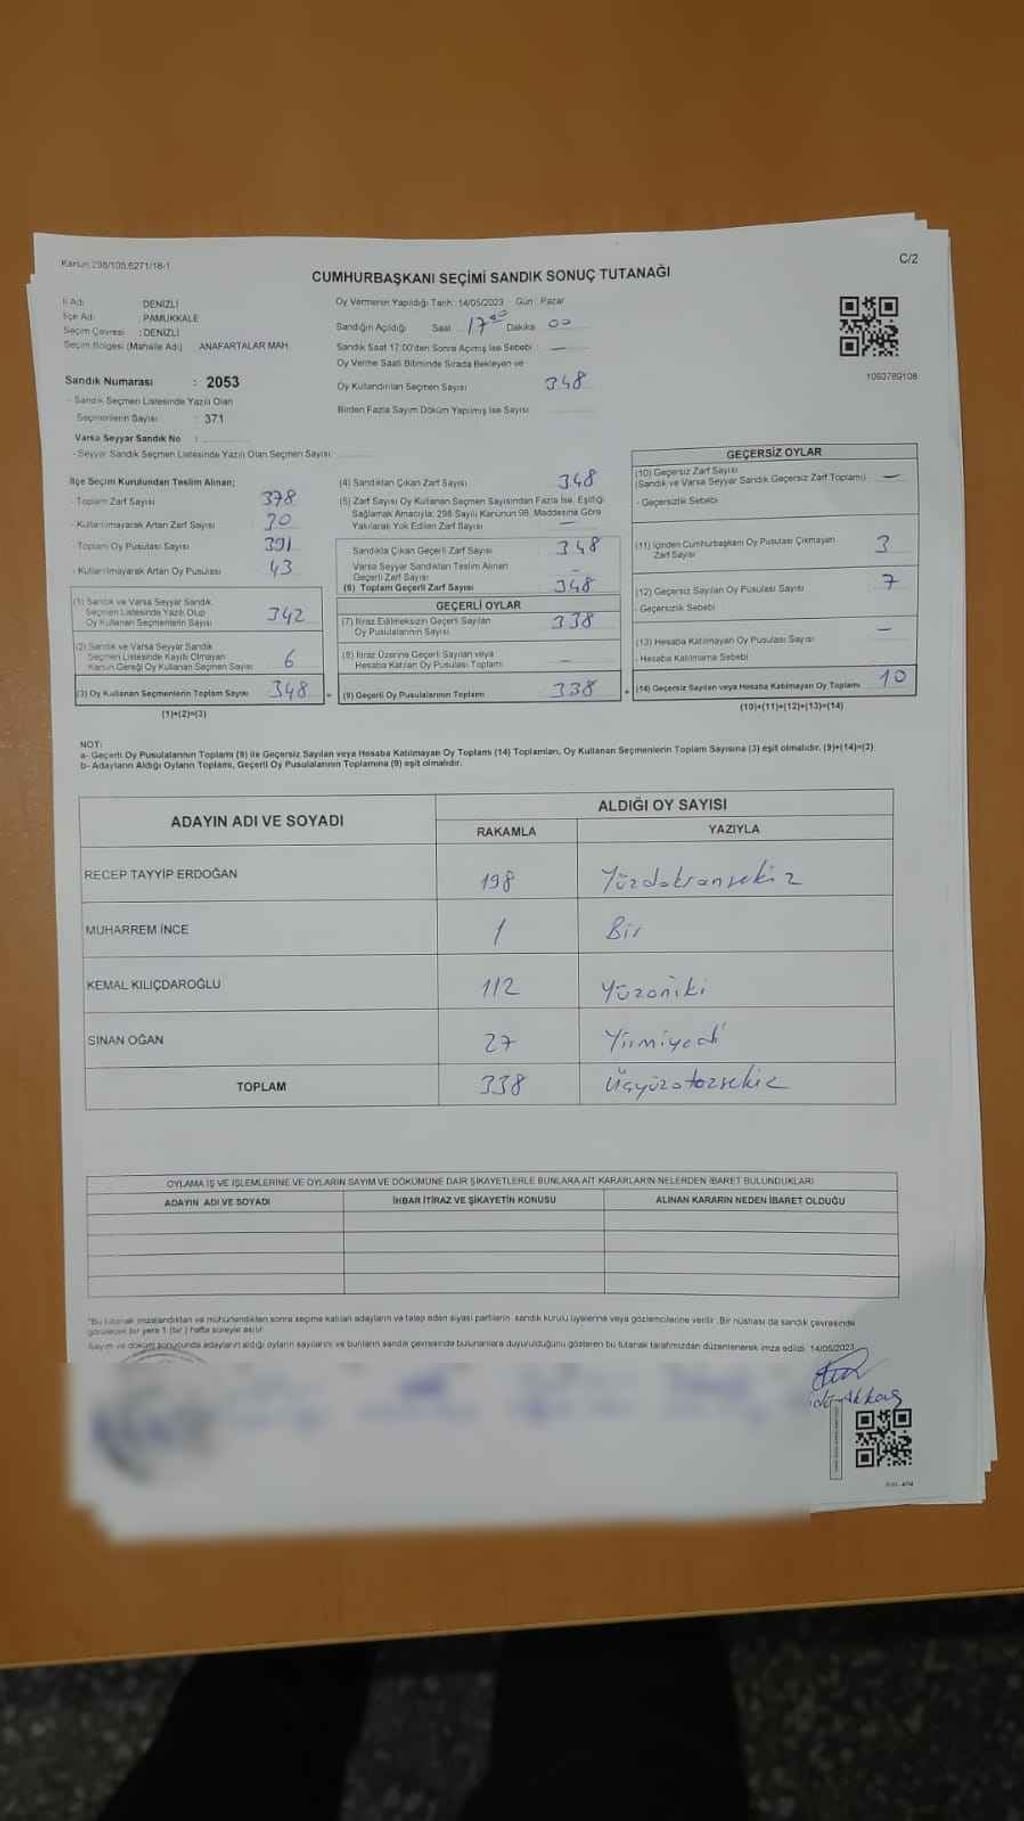 Kanun 298/105,6271/18-1
C/2
CUMHURBAŞKANI SEÇİMİ SANDIK SONUÇ TUTANAĞI
İl Adı DENİZLİ
İlçe Adı PAMUKKALE
Seçim Çevresi : DENİZLİ
Seçim Bölgesi (Mahalle Adı) ANAFARTALAR MAH.
Sandık Numarası : 2053
- Sandık Seçmen Listesinde Yazılı Olan
Seçmenlerin Sayısı : 371
Varsa Seyyar Sandık No :
- Seyyar Sandık Seçmen Listesinde Yazılı Olan Seçmen Sayısı
Oy Vermenin Yapıldığı Tarih: 14/05/2023 Gün: Pazar
Sandığın Açıldığı Saat 17 00 Dakika 00
Sandık Saat 17:00'den Sonra Açılmış İse Sebebi : —
Oy Verme Saati Bitiminde Sırada Bekleyen ve
Oy Kullandırılan Seçmen Sayısı 348
Birden Fazla Sayım Döküm Yapılmış İse Sayısı
1060789108
İlçe Seçim Kurulundan Teslim Alınan;
- Toplam Zarf Sayısı 378
- Kullanılmayarak Artan Zarf Sayısı 30
- Toplam Oy Pusulası Sayısı 391
- Kullanılmayarak Artan Oy Pusulası 43
(1) Sandık ve Varsa Seyyar Sandık
Seçmen Listesinde Yazılı Olup
Oy Kullanan Seçmenlerin Sayısı 342
(2) Sandık ve Varsa Seyyar Sandık
Seçmen Listesinde Kayıtlı Olmayan
Kanun Gereği Oy Kullanan Seçmen Sayısı 6
(3) Oy Kullanan Seçmenlerin Toplam Sayısı 348
(1)+(2)=(3)
(4) Sandıktan Çıkan Zarf Sayısı 348
(5) Zarf Sayısı Oy Kullanan Seçmen Sayısından Fazla İse, Eşitliği
Sağlamak Amacıyla; 298 Sayılı Kanunun 98. Maddesine Göre
Yakılarak Yok Edilen Zarf Sayısı —
Sandıkta Çıkan Geçerli Zarf Sayısı 348
Varsa Seyyar Sandıktan Teslim Alınan
Geçerli Zarf Sayısı –
(6) Toplam Geçerli Zarf Sayısı 348
GEÇERLİ OYLAR
(7) İtiraz Edilmeksizin Geçerli Sayılan
Oy Pusulalarının Sayısı 338
(8) İtiraz Üzerine Geçerli Sayılan veya
Hesaba Katılan Oy Pusulası Toplamı —
= (9) Geçerli Oy Pusulalarının Toplamı 338
GEÇERSİZ OYLAR
(10) Geçersiz Zarf Sayısı
(Sandık ve Varsa Seyyar Sandık Geçersiz Zarf Toplamı) —
- Geçersizlik Sebebi
(11) İçinden Cumhurbaşkanı Oy Pusulası Çıkmayan
Zarf Sayısı 3
(12) Geçersiz Sayılan Oy Pusulası Sayısı 7
- Geçersizlik Sebebi
(13) Hesaba Katılmayan Oy Pusulası Sayısı —
- Hesaba Katılmama Sebebi
+ (14) Geçersiz Sayılan veya Hesaba Katılmayan Oy Toplamı 10
(10)+(11)+(12)+(13)=(14)
NOT:
a- Geçerli Oy Pusulalarının Toplamı (9) ile Geçersiz Sayılan veya Hesaba Katılmayan Oy Toplamı (14) Toplamları, Oy Kullanan Seçmenlerin Toplam Sayısına (3) eşit olmalıdır. (9)+(14)=(3)
b- Adayların Aldığı Oyların Toplamı, Geçerli Oy Pusulalarının Toplamına (9) eşit olmalıdır.
ADAYIN ADI VE SOYADI ALDIĞI OY SAYISI
RAKAMLA YAZIYLA
RECEP TAYYİP ERDOĞAN 198 Yüzdoksansekiz
MUHARREM İNCE 1 Bir
KEMAL KILIÇDAROĞLU 112 Yüzoniki
SİNAN OĞAN 27 Yirmiyedi
TOPLAM 338 Üçyüzotuzsekiz
OYLAMA İŞ VE İŞLEMLERİNE VE OYLARIN SAYIM VE DÖKÜMÜNE DAİR ŞİKAYETLERLE BUNLARA AİT KARARLARIN NELERDEN İBARET BULUNDUKLARI
ADAYIN ADI VE SOYADI İHBAR İTİRAZ VE ŞİKAYETİN KONUSU ALINAN KARARIN NEDEN İBARET OLDUĞU
*Bu tutanak imzalandıktan ve mühürlendikten sonra seçime katılan adayların ve talep eden siyasi partilerin sandık kurulu üyelerine veya gözlemcilerine verilir. Bir nüshası da sandık çevresinde
görülecek bir yere 1 (bir) hafta süreyle asılır.
Sayım ve döküm sonucunda adayların aldığı oyların sayılarını ve bunların sandık çevresinde bulunanlara duyurulduğunu gösteren bu tutanak tarafımızdan düzenlenerek imza edildi. 14/05/2023
Akkaş